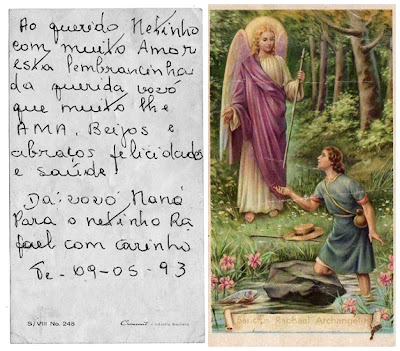 Ao querido Netinho
com muito Amor
esta lembrancinha
da querida vovó
que muito lhe
AMA. Beijos e
abraços felicidades
e saúde!
Da vovó Naná
Para o netinho Ra
fael com carinho
Te - 09-05-93
S/VIII No. 248
Sanctus Raphael Archangelus